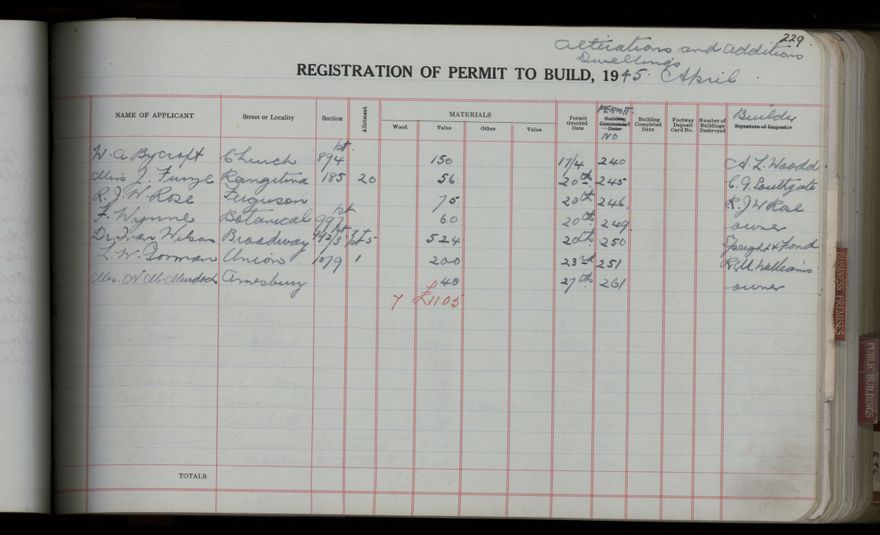 229
Alterations and additions
Dwellings
REGISTRATION OF PERMIT TO BUILD, 1945. April
NAME OF APPLICANT Street or Locality Section Allotment MATERIALS Wood Value Other Value Permit Granted Date PERMIT NO Building Commenced Date Building Completed Date Footway Deposit Card No. Number of Buildings Destroyed Builder Signature of Inspector
W. A. Bycroft Church pt. 894 150 17/4 240 A L Woodd.
Miss J. Rangitina 185 20 56 20th 245 C. G. Southgate
R. J. W. Rose Ferguson 75 20th 246 R J W Rose
F. Wynne Botanical pt 997 60 20th 249 owner
Dr. Ivan Wilson Broadway pt 5 524 20th 250
L. W. Gorman Union 1079 1 200 23rd 251 Williams
Mrs. Murdoch Amesbury 40 27th 261 owner
7 £1105
TOTALS
BUSINESS PREMISES
PUBLIC BUILDINGS